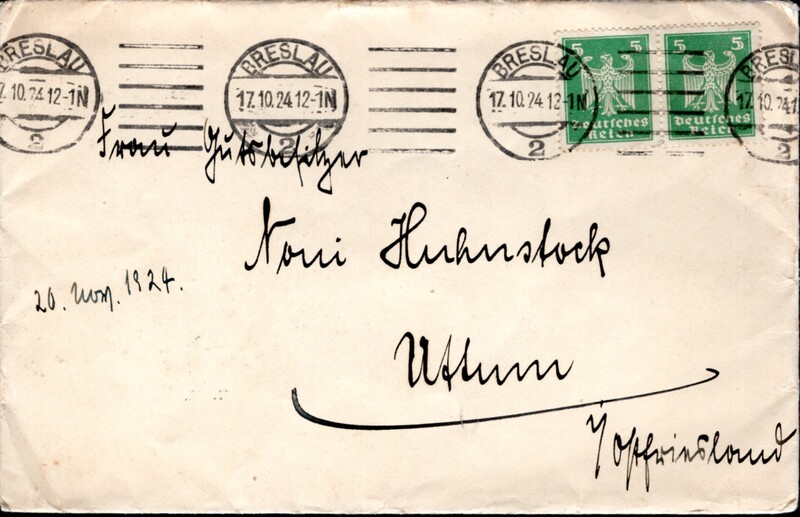 BRESLAU
17.10.24.12-1N
2
BRESLAU
17.10.24.12-1N
2
BRESLAU
17.10.24.12-1N
2
BRESLAU
17.10.24.1
2
5 5
Deutsches
Reich
5 5
Deutsches
Reich
Frau Gutsbesitzer
Noni Huhnstock
20. Nov. 1924.
Uttum
i/Ostfriesland